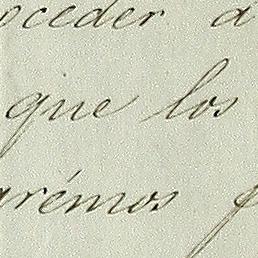 oceder a
que los
arémos p